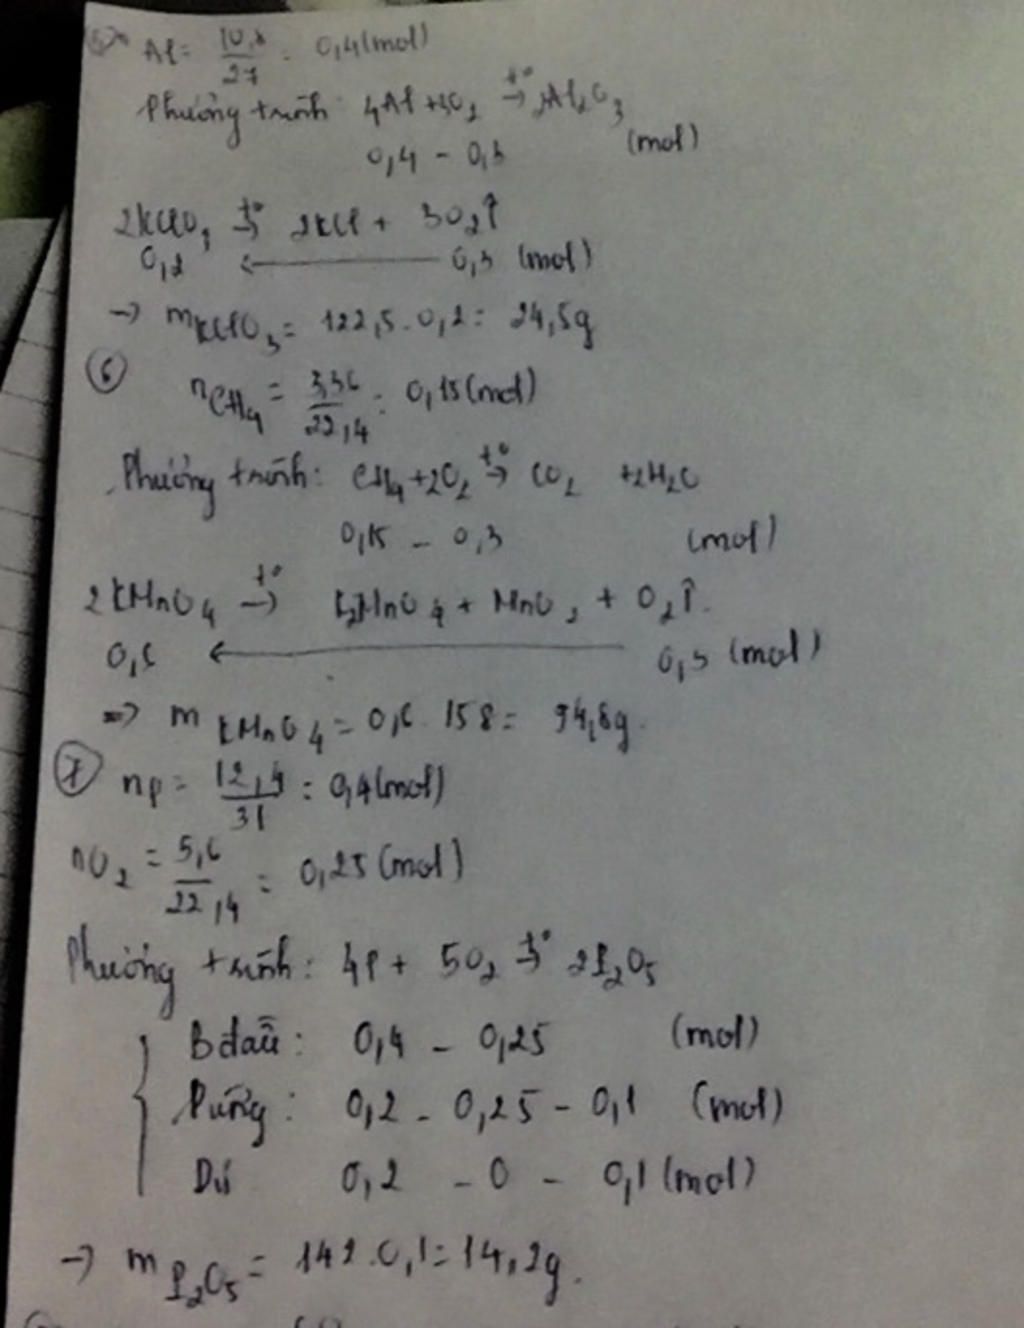 Al = 10,8/27 = 0,4 (mol)
Phương trình: 4Al + 3O₂ →t° 2Al₂O₃
0,4 - 0,3 (mol)
2KClO₃ →t° 2KCl + 3O₂↑
0,2 ← 0,3 (mol)
→ mKClO₃ = 122,5 . 0,2 = 24,5g
⑥ nCH₄ = 3,36/22,4 = 0,15 (mol)
Phương trình: CH₄ + 2O₂ →t° CO₂ + 2H₂O
0,15 - 0,3 (mol)
2KMnO₄ →t° K₂MnO₄ + MnO₂ + O₂↑.
0,6 ← 0,3 (mol)
=> m KMnO₄ = 0,6 . 158 = 94,8g.
⑦ nP = 12,4/31 = 0,4 (mol)
nO₂ = 5,6/22,4 = 0,25 (mol)
Phương trình: 4P + 5O₂ →t° 2P₂O₅
Bđầu: 0,4 - 0,25 (mol)
Pứng: 0,2 - 0,25 - 0,1 (mol)
Dư 0,2 - 0 - 0,1 (mol)
→ m P₂O₅ = 142 . 0,1 = 14,2g.